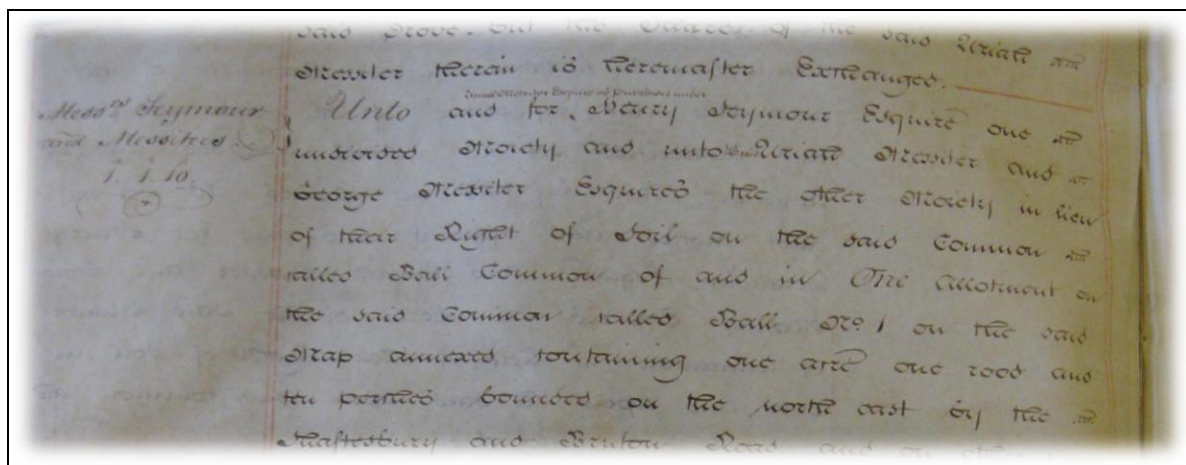 said Grove. but the Shares of the said Uriah and
Messiter therein is hereinafter Exchanged.
Messrs Seymour
and Messiters
A R P
1. 1. 10.
Unto and for Henry Seymour Esquire one
undivided Moiety and unto Uriah Messiter and
George Messiter Esquires the other Moiety in lieu
of their Right of Soil on the said Common
called Ball Common of and in One allotment on
the said Common called Ball No. 1 on the said
Map annexed containing one acre one rood and
ten perches bounded on the north east by the
Shaftesbury and Bruton Road and on